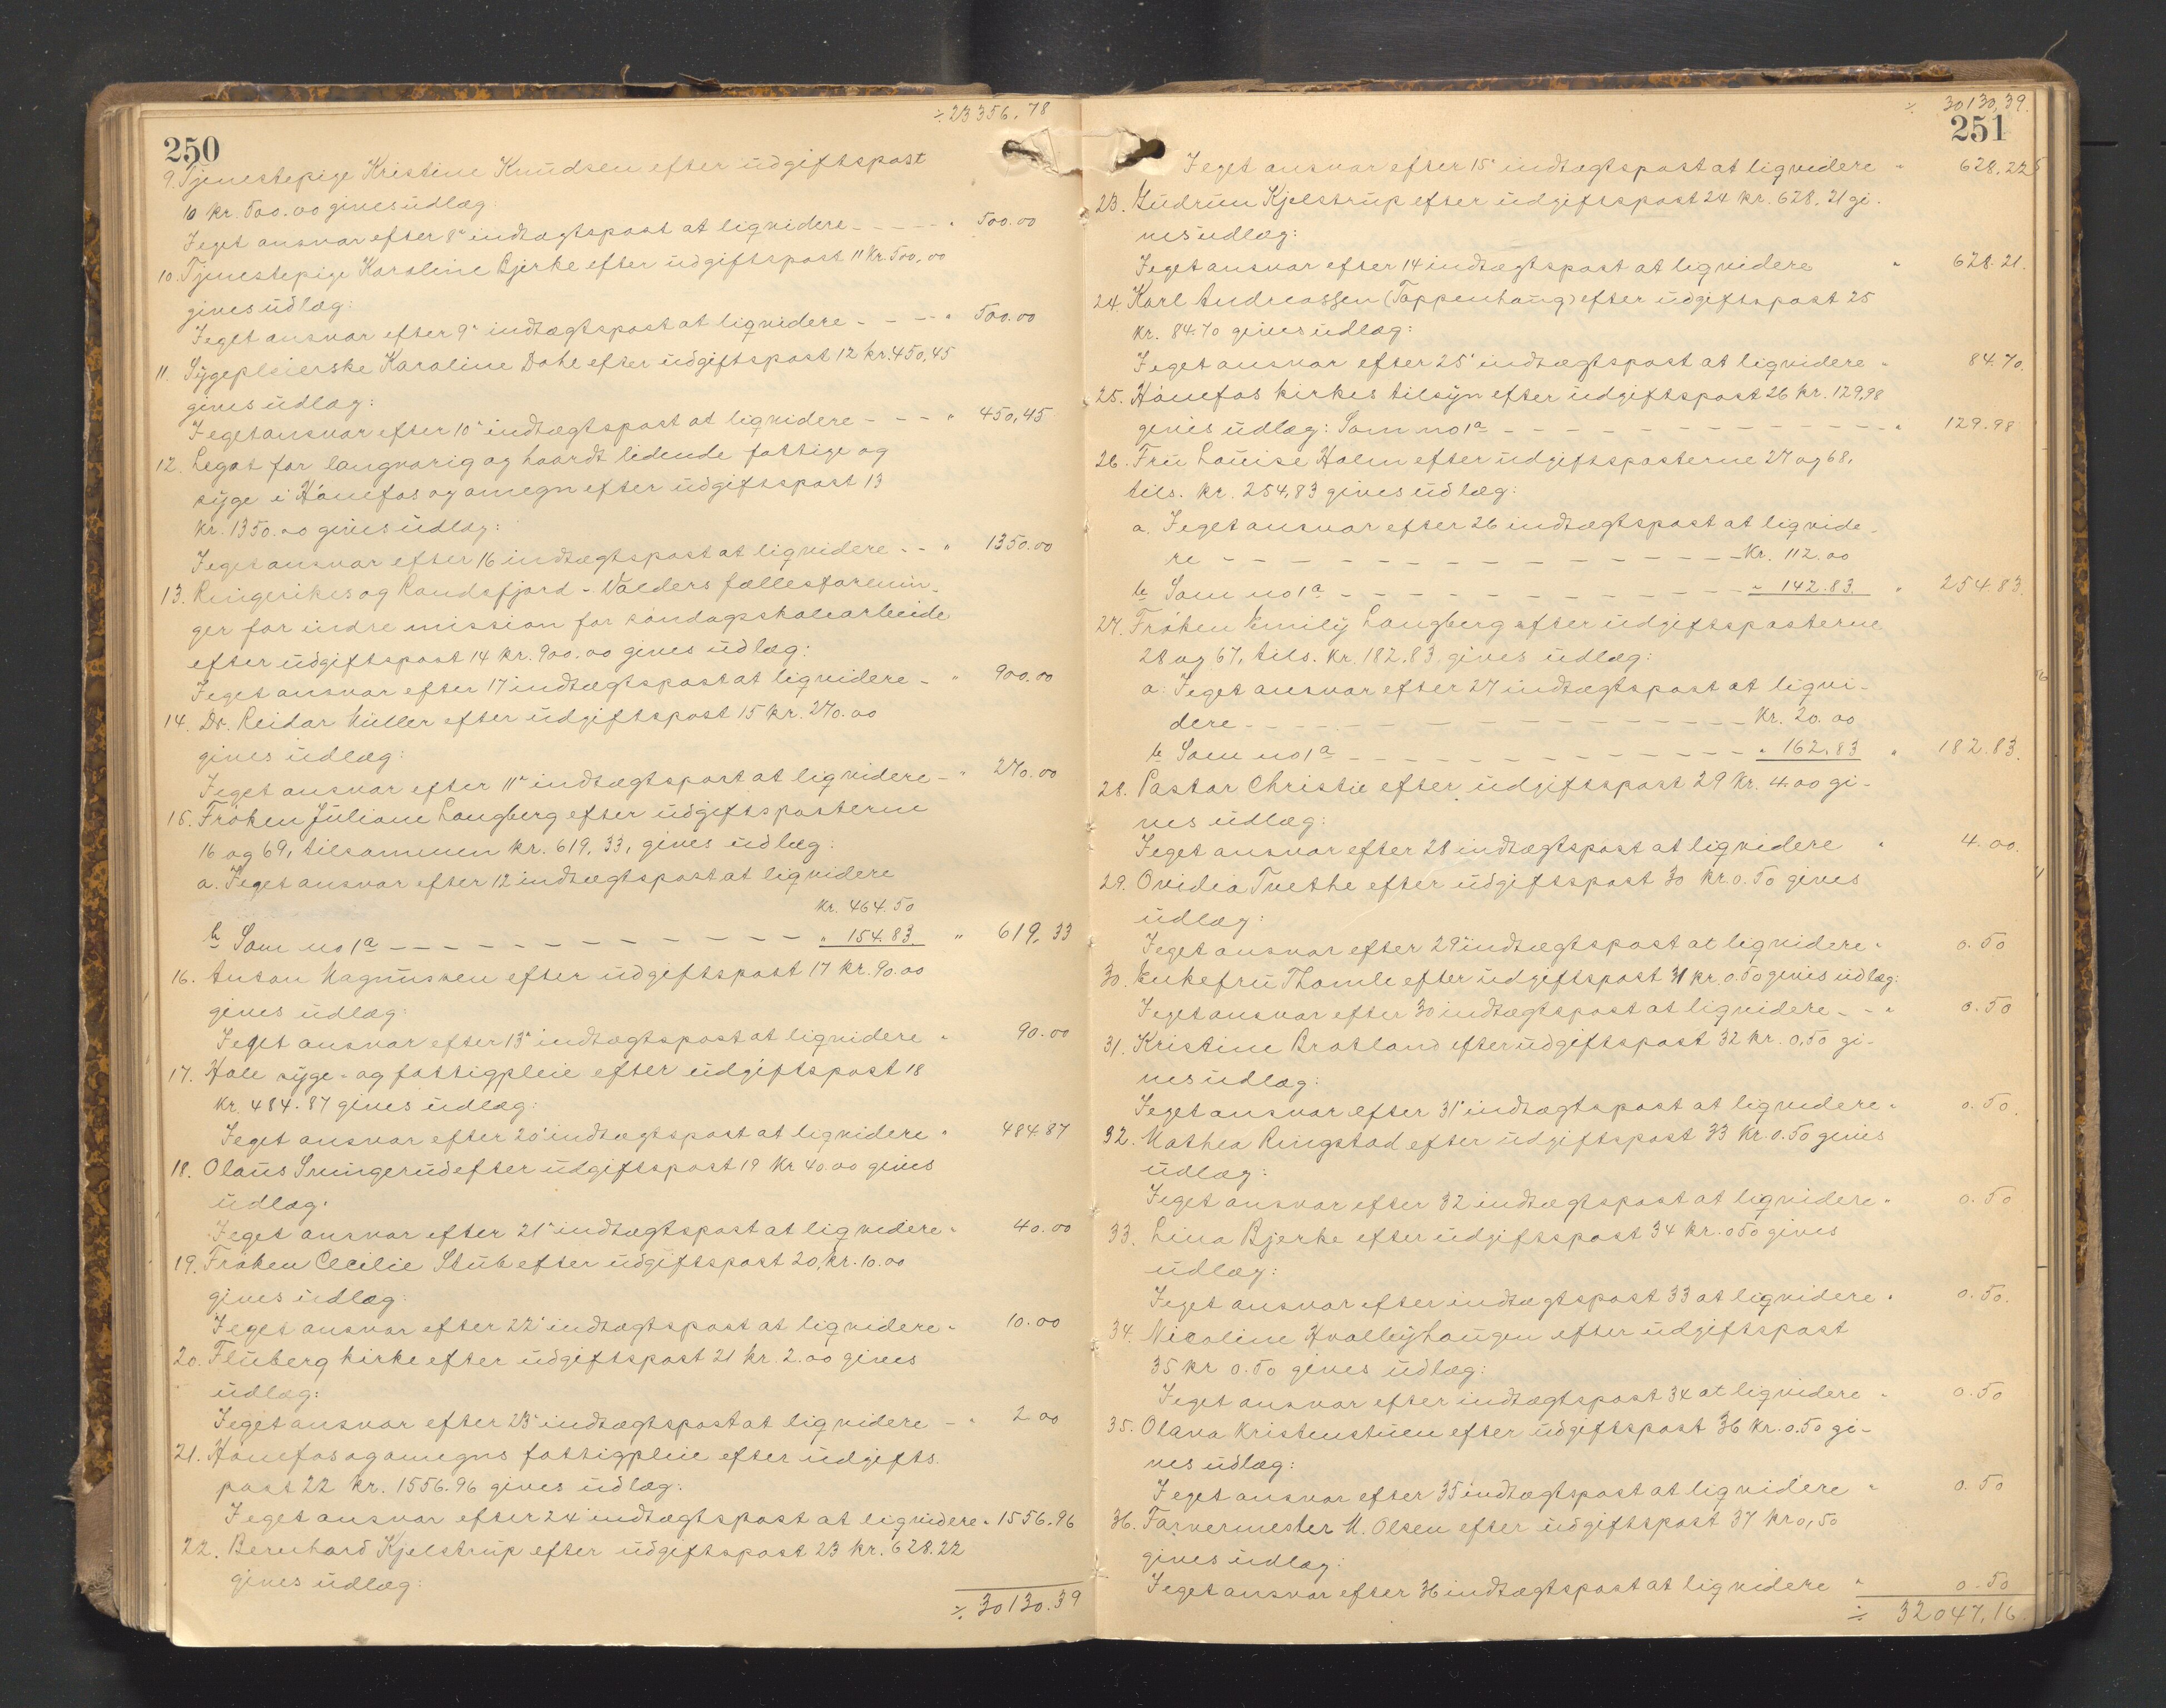 ÷ 23356,78
250
9. Tjenestepige Kristine Knudsen efter udgiftspost
10 kr. 500.00 gives udlæg:
I eget ansvar efter 8' indtægtspost at liqvidere - - - - " 500.00
10. Tjenestepige Karoline Bjerke efter udgiftspost 11 kr. 500,00
gives udlæg:
I eget ansvar efter 9' indtægtspost at liqvidere - - - - " 500.00
11. Sygepleierske Karoline Dahl efter udgiftspost 12 kr. 450,45
gives udlæg:
I eget ansvar efter 10' indtægtspost at liqvidere - - - " 450,45
12. Legat for langvarig og haardt lidende fattige og
syge i Hønefos og omegn efter udgiftspost 13
kr. 1350.00 gives udlæg:
I eget ansvar efter 16 indtægtspost at liqvidere - - " 1350.00
13. Ringerikes og Randsfjord - Valders fællesforenin-
ger for indre mission for søndagsskolearbeide
efter udgiftspost 14 kr. 900.00 gives udlæg:
I eget ansvar efter 17 indtægtspost at liqvidere - " 900.00
14. Dr. Reidar Müller efter udgiftspost 15 kr. 270.00
gives udlæg:
I eget ansvar efter 11' indtægtspost at liqvidere - " 270.00
15. Frøken Juliane Langberg efter udgiftsposterne
16 og 69, tilsammen kr. 619,33, gives udlæg:
a. I eget ansvar efter 12 indtægtspost at liqvidere
kr. 464.50
b Som no 1a - - - - - - - - - - - - - " 154.83. " 619,33
16. Anton Magnussen efter udgiftspost 17 kr. 90.00
gives udlæg:
I eget ansvar efter 13' indtægtspost at liqvidere " 90.00
17. Hole syge- og fattigpleie efter udgiftspost 18
kr. 484.87 gives udlæg:
I eget ansvar efter 20' indtægtspost at liqvidere " 484.87
18. Olaus efter udgiftspost 19 kr 40.00 gives
udlæg.
I eget ansvar efter 21' indtægtspost at liqvidere " 40.00
19. Frøken Cecilie Stub efter udgiftspost 20, kr. 10.00
gives udlæg:
I eget ansvar efter 22' indtægtspost at liqvidere " 10.00
20. Fluberg kirke efter udgiftspost 21 kr. 2.00 gives
udlæg:
I eget ansvar efter 23' indtægtspost at liqvidere - " 2.00
21. Hønefos og omegns fattigpleie efter udgifts.
post 22 kr. 1556.96 gives udlæg:
I eget ansvar efter 24' indtægtspost at liqvidere " 1556.96
22. Bernhard Kjelstrup efter udgiftspost 23 kr. 628.22
gives udlæg:
÷ 30130.39
÷ 30130,39.
251
I eget ansvar efter 15' indtægtspost at liqvidere " 628,22
23. Gudrun Kjelstrup efter udgiftspost 24 kr. 628,21 gi-
ves udlæg:
I eget ansvar efter 14 indtægtspost at liqvidere " 628.21.
24. Karl Andreassen (Tappenhaug) efter udgiftspost 25
kr. 84.70 gives udlæg:
I eget ansvar efter 25' indtægtspost at liqvidere " 84.70.
25. Hønefos kirkes tilsyn efter udgiftspost 26 kr. 129,98
gives udlæg: Som no 1a - - - - - - - - - - - - - - " 129.98
26. Fru Louise Holm efter udgiftsposterne 27 og 68,
tils. kr. 254,83 gives udlæg:
a. I eget ansvar efter 26 indtægtspost at liqvide-
re - - - - - - - - - - - - - - - - Kr. 112.00
b Som no 1a - - - - - - - - - - - - - " 142.83. " 254.83.
27. Frøken Emily Langberg efter udgiftsposterne
28 og 67, tils. kr. 182.83, gives udlæg:
a: I eget ansvar efter 27 indtægtspost at liqvi-
dere - - - - - - - - - - - - - - - - Kr. 20.00
b Som no 1a - - - - - - - - - - - - - " 162.83 " 182.83.
28. Pastor Christie efter udgiftspost 29 kr. 4.00 gi-
ves udlæg:
I eget ansvar efter 28 indtægtspost at liqvidere " 4.00.
29. Ovidia Tvethe efter udgiftspost 30 kr. 0.50 gives
udlæg:
I eget ansvar efter 29' indtægtspost at liqvidere " 0.50
30. Enkefru Thomle efter udgiftspost 31 kr. 0.50 gives udlæg:
I eget ansvar efter 30 indtægtspost at liqvidere - - " 0.50
31. Kristine Bratland efter udgiftspost 32 kr. 0,50 gi-
ves udlæg:
I eget ansvar efter 31' indtægtspost at liqvidere " 0.50.
32. Mathea Ringstad efter udgiftspost 33 kr. 0.50 gives
udlæg:
I eget ansvar efter 32 indtægtspost at liqvidere " 0.50
33. Lina Bjerke efter udgiftspost 34 kr. 0.50 gives
udlæg:
I eget ansvar efter indtægtspost 33 at liqvidere " 0.50.
34. Nicoline efter udgiftspost
35 kr 0.50 gives udlæg:
I eget ansvar efter indtægtspost 34 at liqvidere " 0.50
35. Olava Kristenstuen efter udgiftspost 36 kr. 0.50 gi-
ves udlæg:
I eget ansvar efter 35' indtægtspost at liqvidere " 0.50
36. Farvermester M. Olsen efter udgiftspost 37 kr 0,50
gives udlæg:
I eget ansvar efter 36 indtægtspost at liqvidere " 0.50
÷ 32047,16.